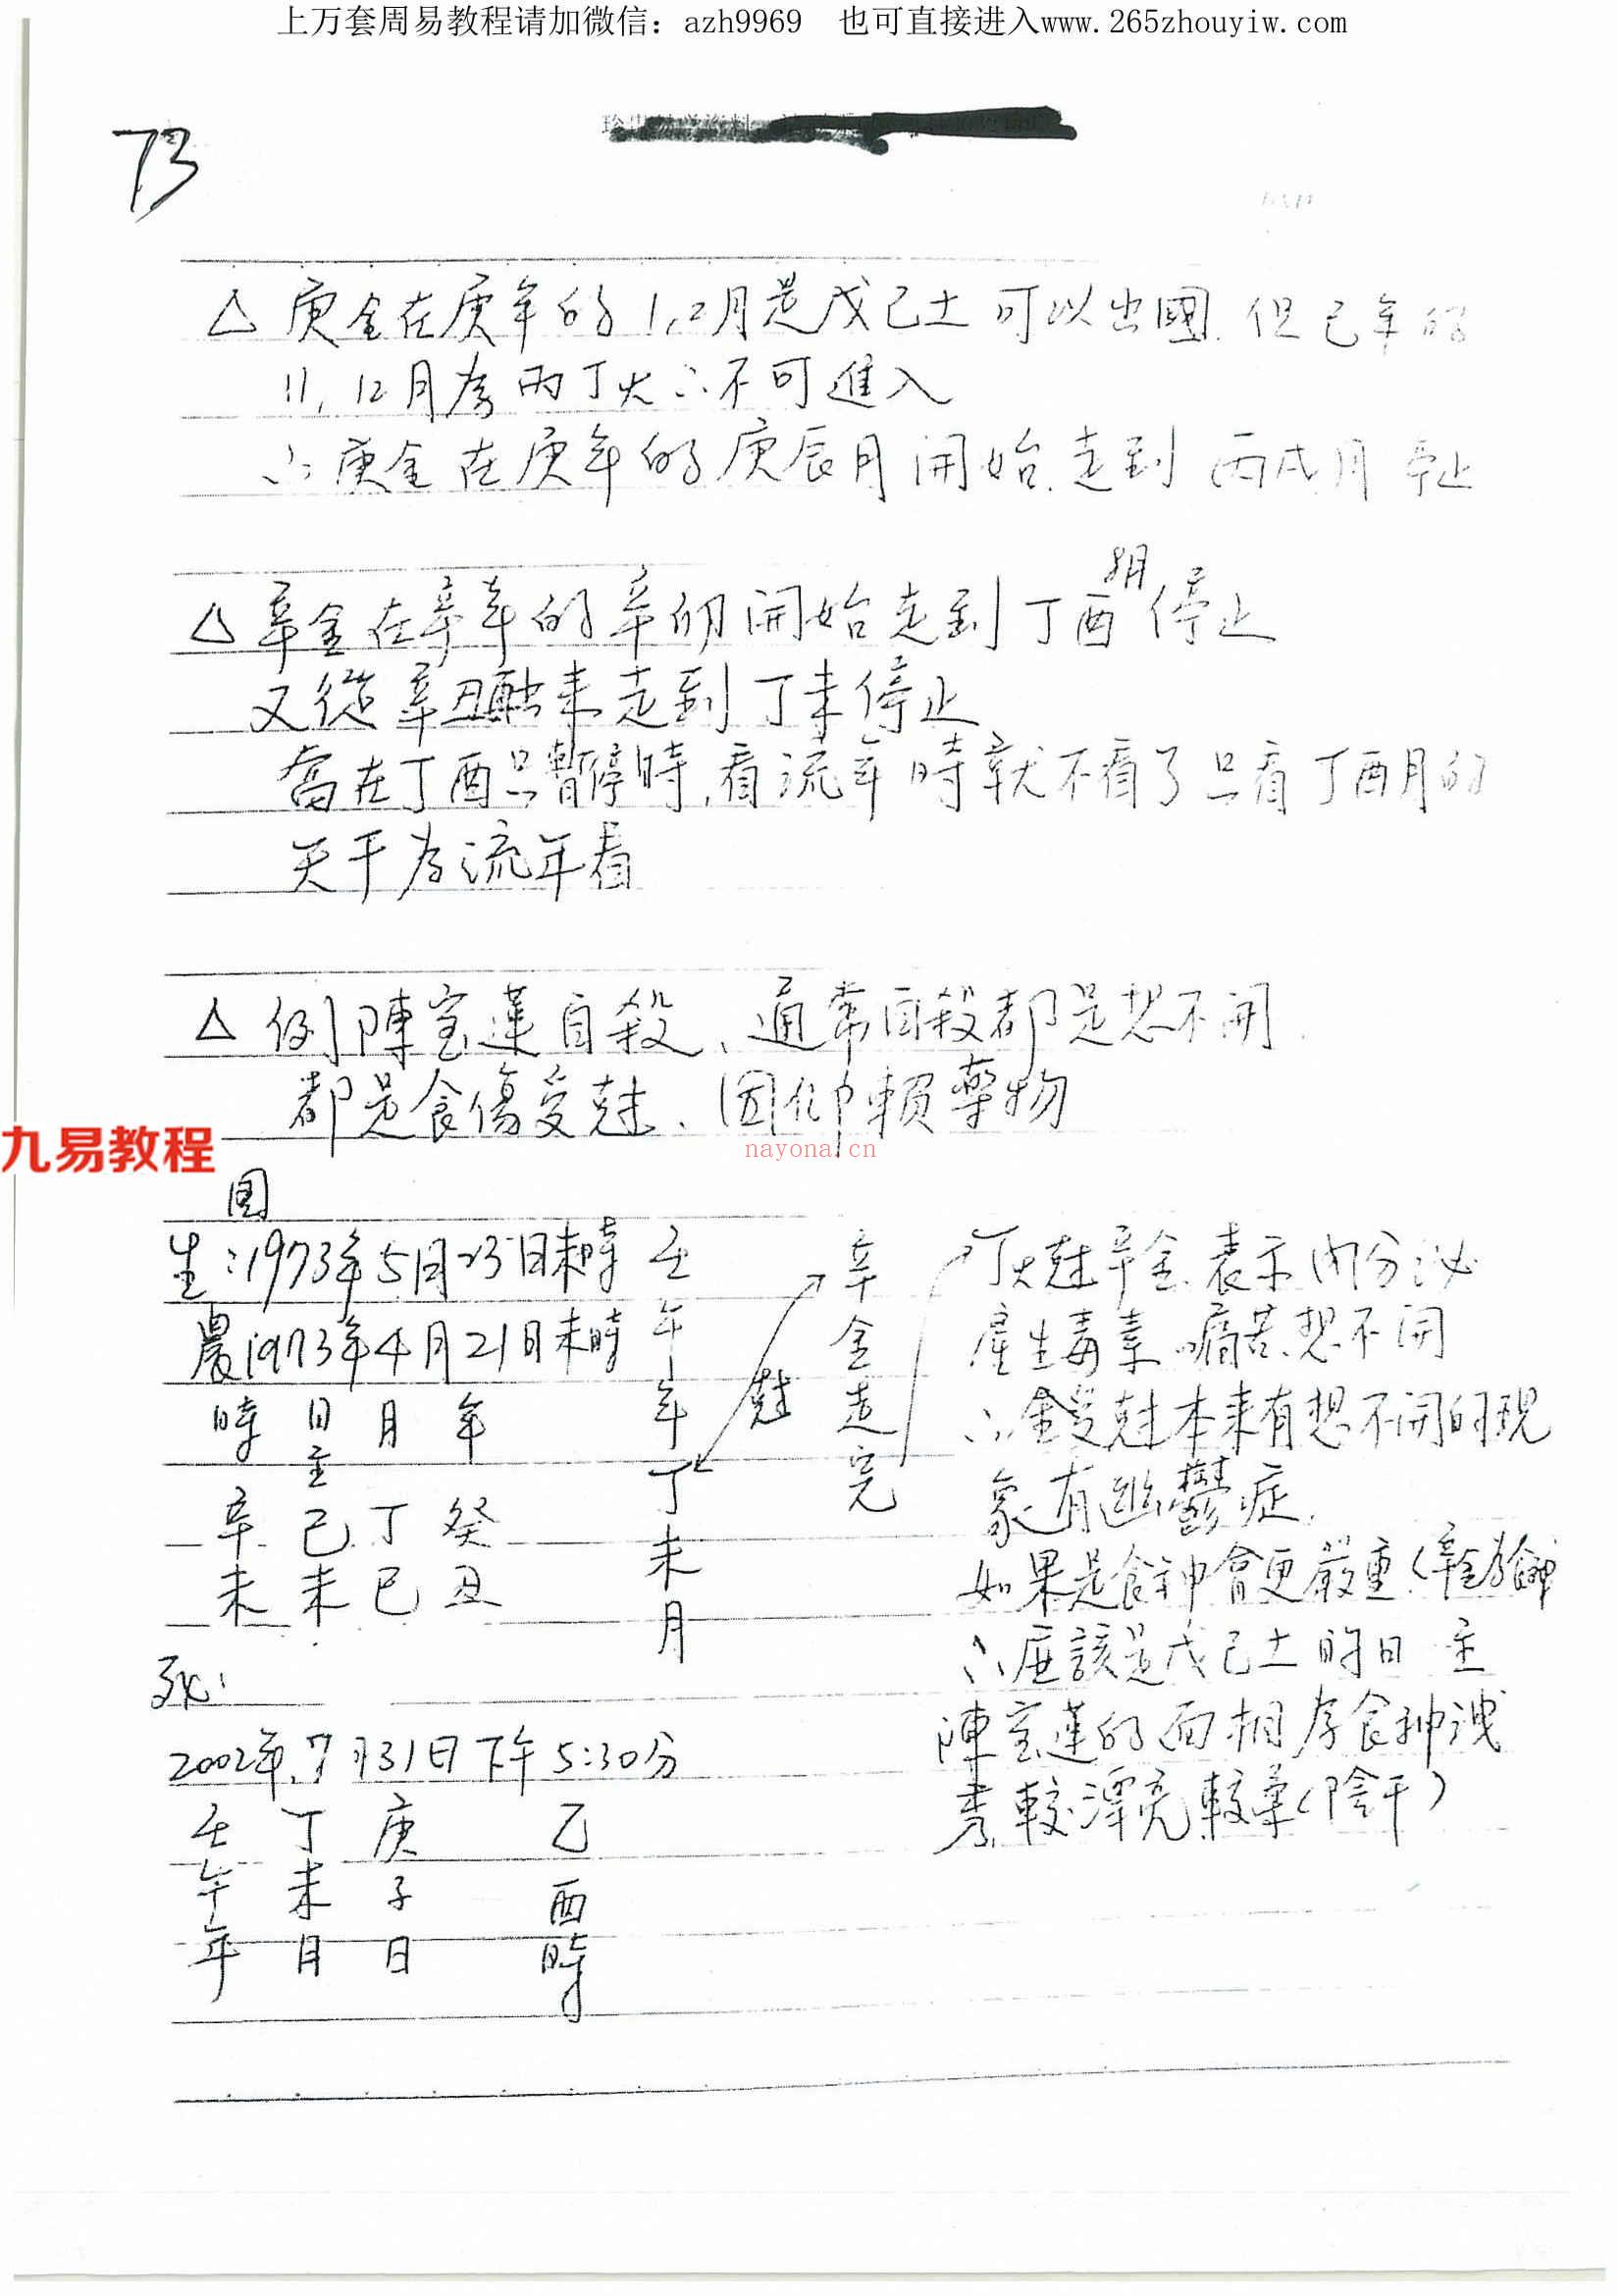 上万套周易教程请加微信：azh9969　也可直接进入www.265zhouyiw.com
73
△ 庚金在庚年的1,2月是戊己土可以出國.但己年的
11,12月為丙丁火∴不可進入
∴庚金在庚年的庚辰月開始.走到丙戌月停止
8月
△ 辛金在辛年的辛卯開始走到丁酉停止
又從辛丑 來走到丁未停止
當在丁酉只暫停時,看流年時就不看了只看丁酉月的
天干為流年看
△ 例陳宝蓮自殺、通常自殺都是想不開.
都是食傷受尅、因仰賴藥物
九易教程
nayona.cn
國
生:1973年5月23日未時
農1973年4月21日未時
時 日主 月 年
辛 己 丁 癸
未 未 巳 丑
壬午年丁未月
尅
辛金走完
丁火尅辛金.表示內分泌
產生毒素.痛苦.想不開
∴金受尅本來有想不開的現
象.有幽鬱症.
如果是食神會更嚴重(辛金為食神
∴應該是戊己土的日主
陳宝蓮的面相為食神洩
秀.較漂亮.較 (陰干)
死:
2002年.7月31日下午5:30分
壬 丁 庚 乙
午 未 子 酉
年 月 日 時